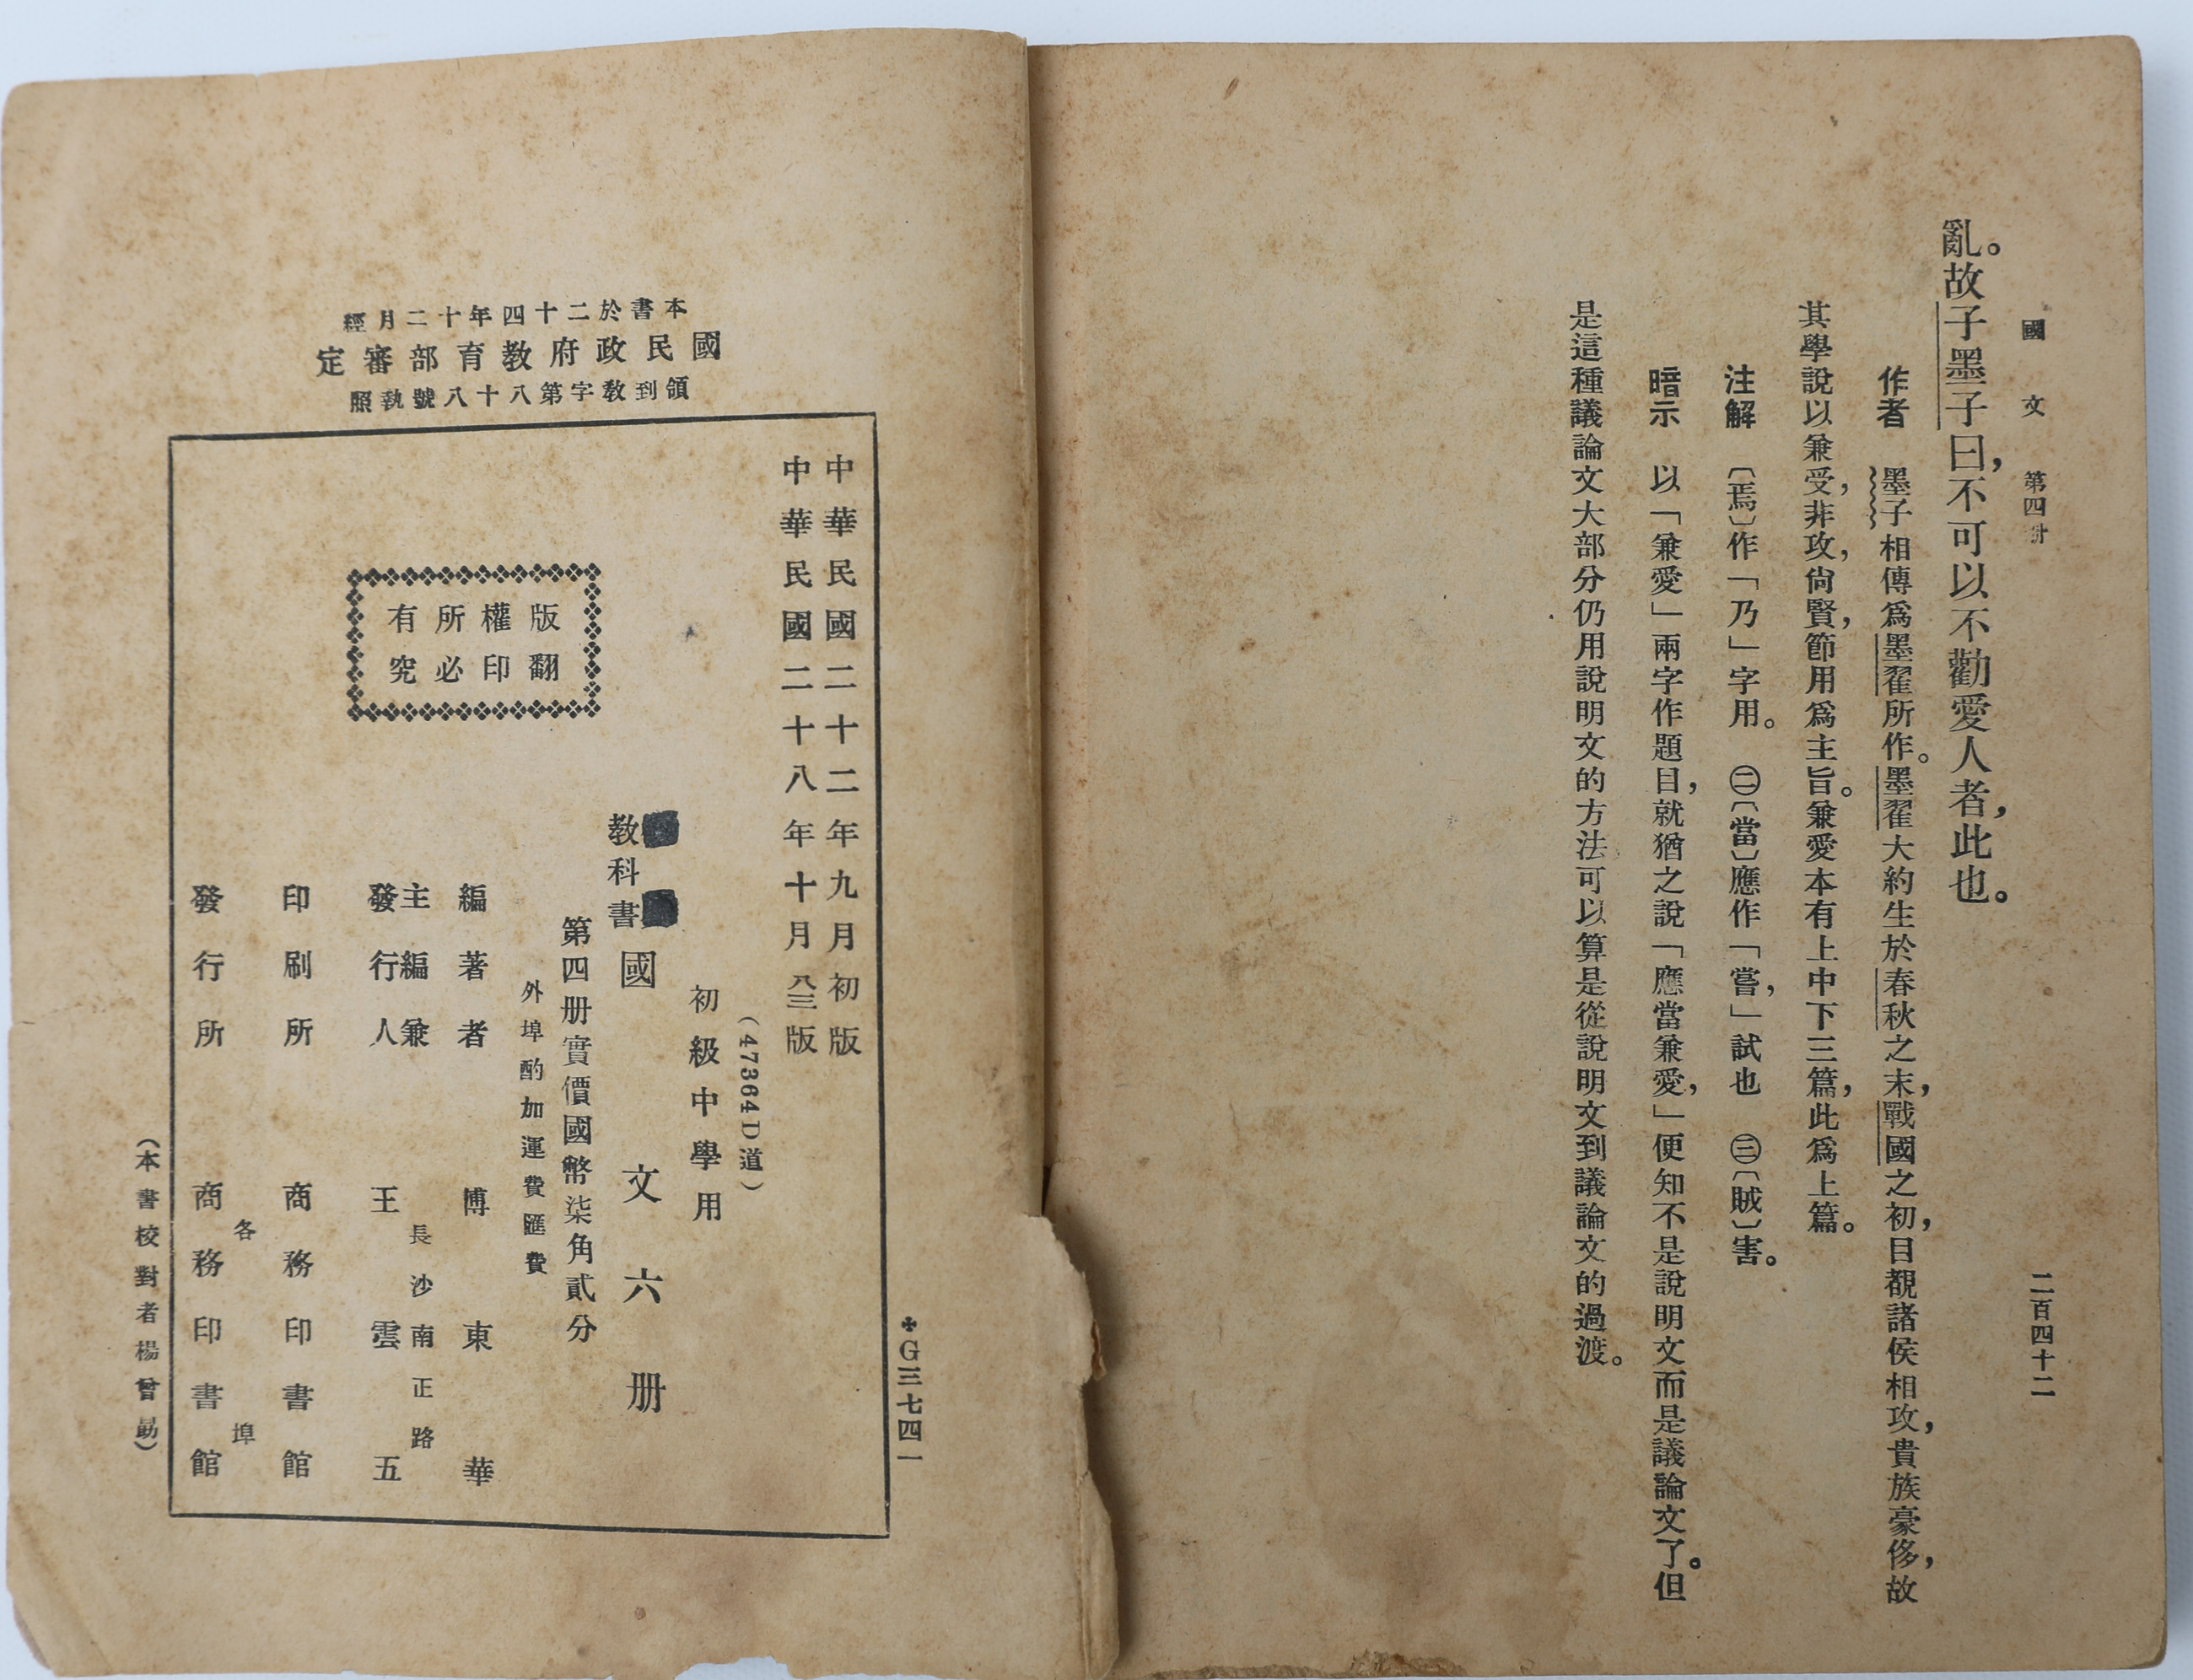 國文 第四冊 二百四十二
亂。故子墨子曰，不可以不勸愛人者，此也。
作者 墨子相傳爲墨翟所作。墨翟大約生於春秋之末，戰國之初，目覩諸侯相攻，貴族豪侈，故
其學說以兼受，非攻，尙賢，節用爲主旨。兼愛本有上中下三篇，此爲上篇。
注解 〔焉〕作「乃」字用。 ㊁〔當〕應作「嘗，」試也 ㊂〔賊〕害。
暗示 以「兼愛」兩字作題目，就猶之說「應當兼愛，」便知不是說明文而是議論文了。但
是這種議論文大部分仍用說明文的方法可以算是從說明文到議論文的過渡。
本書於二十四年十二月經
國民政府教育部審定
領到敎字第八十八號執照
✤G三七四一
中華民國二十二年九月初版
中華民國二十八年十月八三版
(47364D道)
初級中學用
教科書 國文六册
第四册實價國幣柒角貳分
外埠酌加運費匯費
版權所有
翻印必究
編著者 傅東華
主編兼
發行人 王雲五
長沙南正路
印刷所 商務印書館
各埠
發行所 商務印書館
(本書校對者楊曾勗)